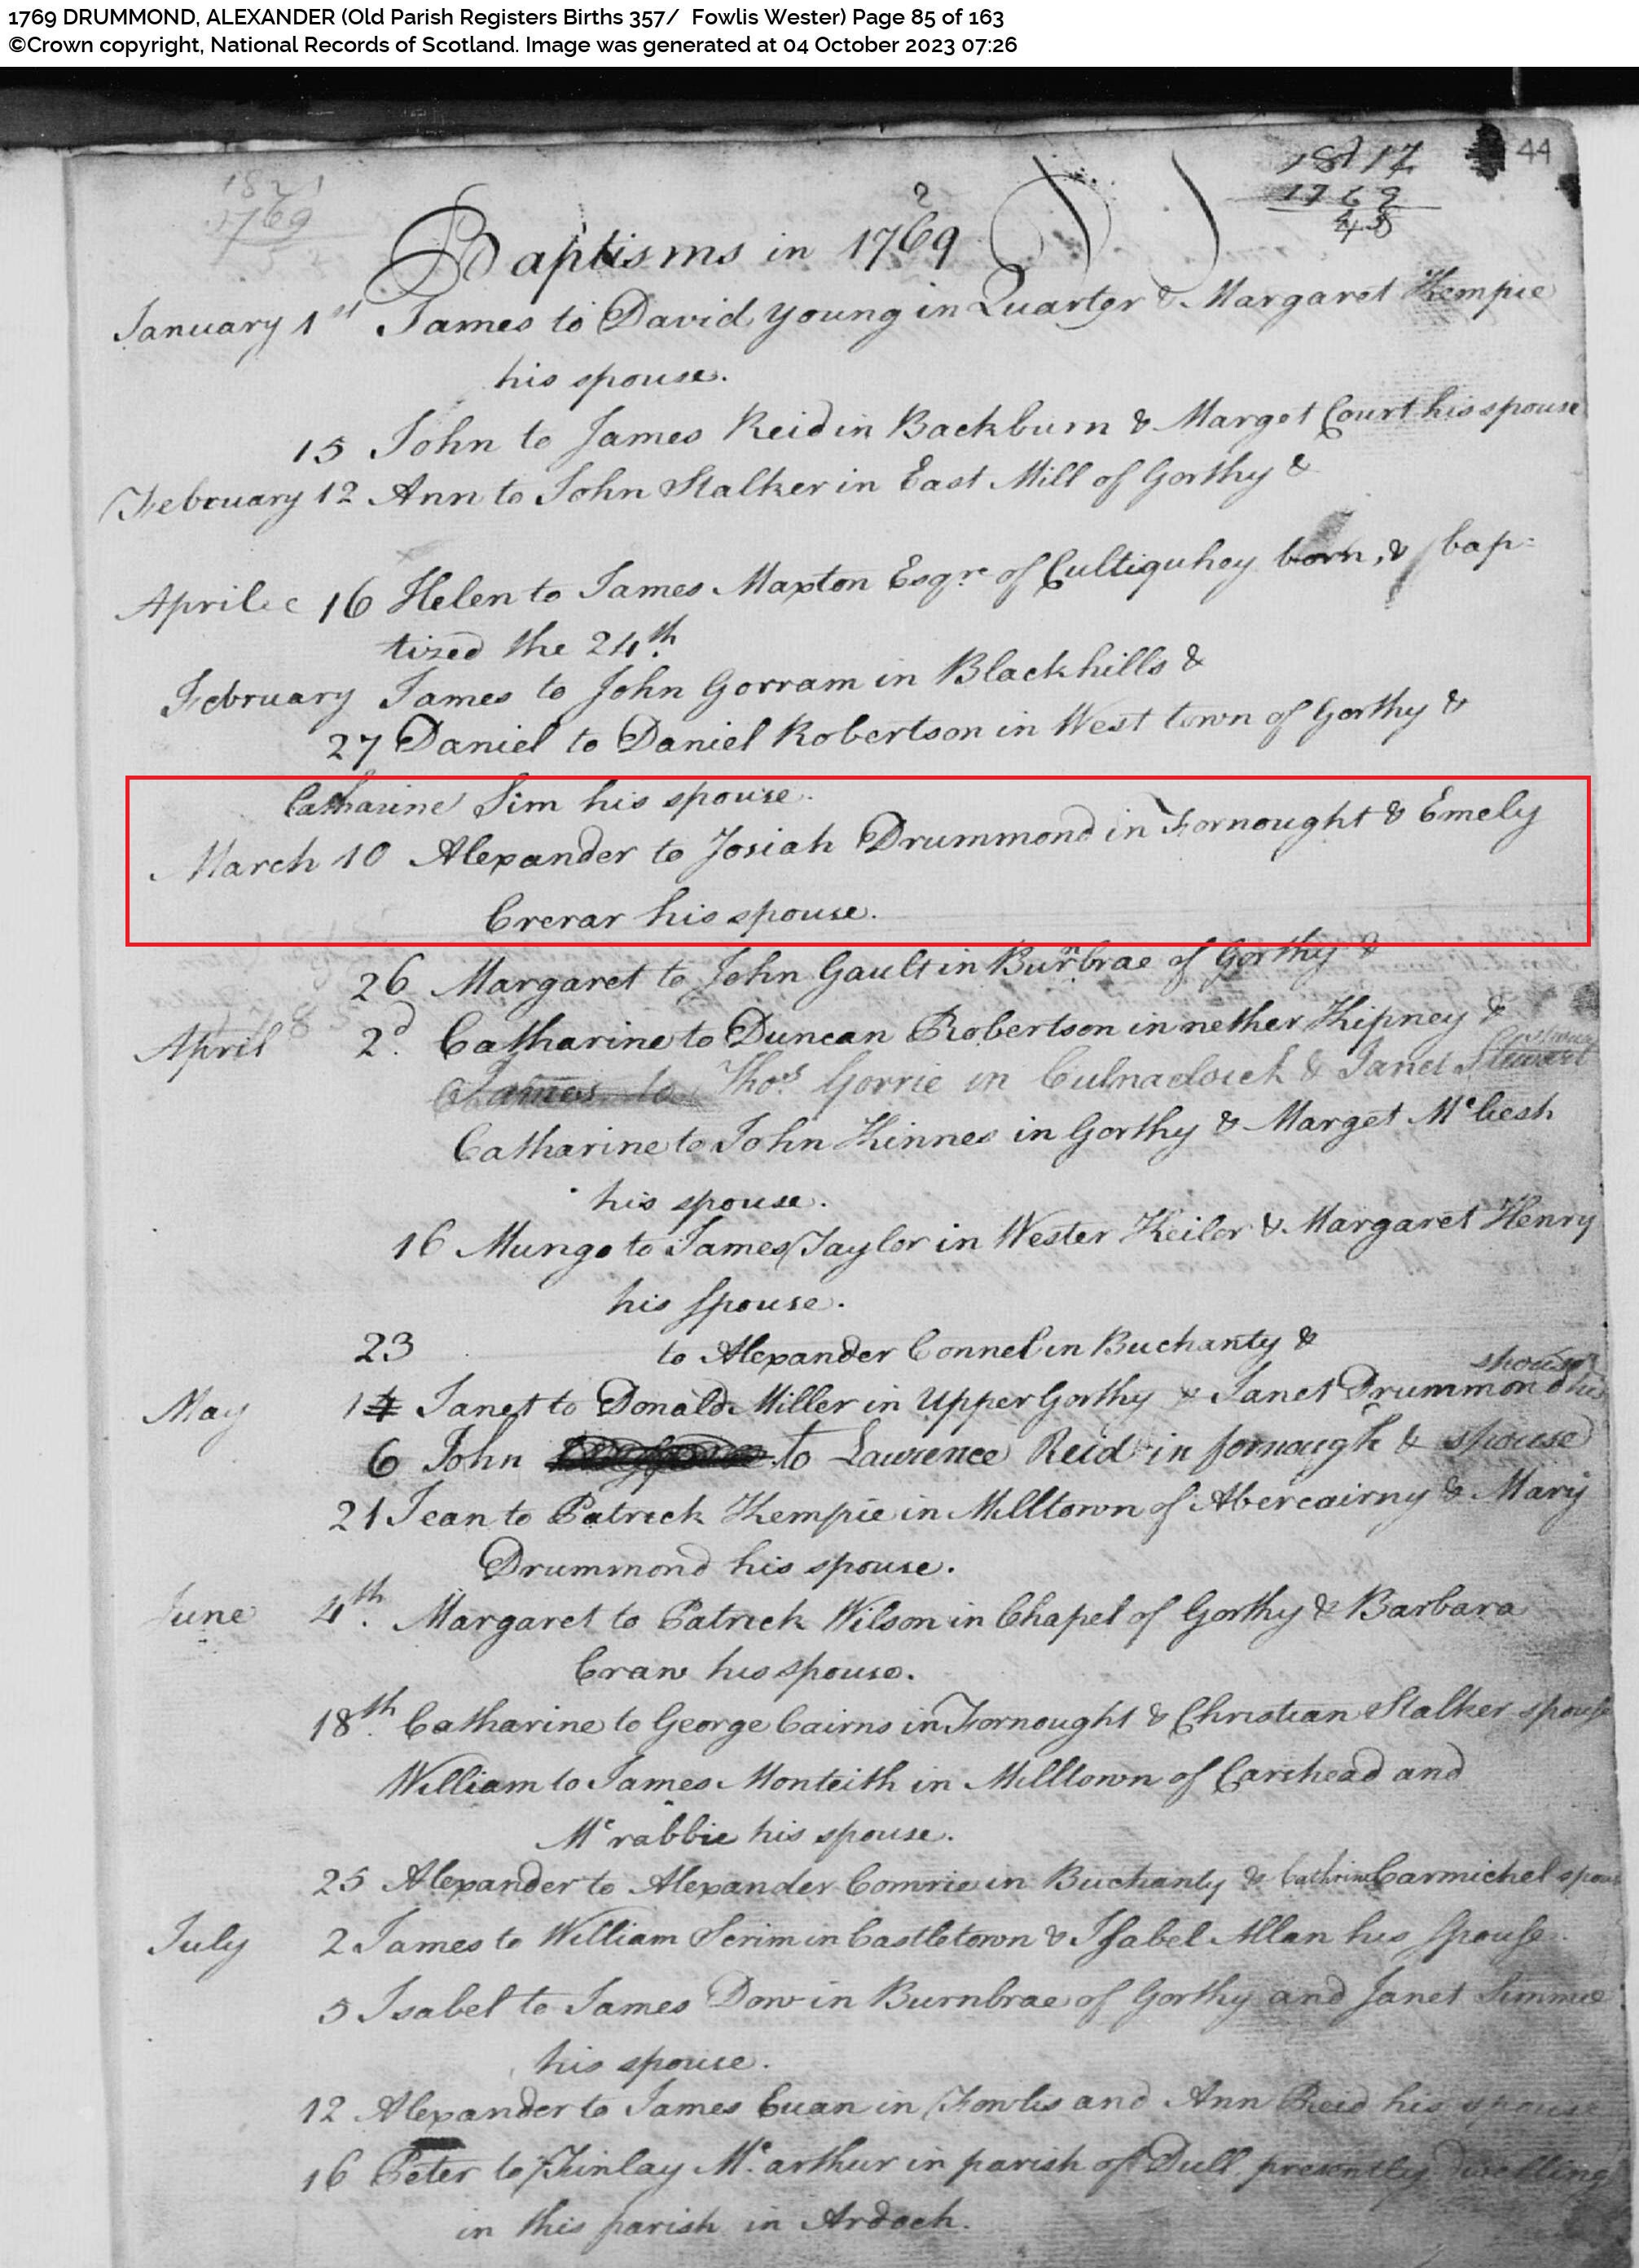 1769 DRUMMOND, ALEXANDER (Old Parish Registers Births 357/ Fowlis Wester) Page 85 of 163
©Crown copyright, National Records of Scotland. Image was generated at 04 October 2023 07:26
44
1821
1769
1817
1769
48
Baptisms in 1769
January 1st James to David Young in Quarter & Margaret Kempie
his spouse.
15 John to James Reid in Backburn & Margot Court his spouse
February 12 Ann to John Stalker in East Mill of Gorthy &
April 16 Helen to James Maxton Esqr. of Cultiquhey born, & bap=
tized the 24th.
February James to John Gorram in Blackhills &
27 Daniel to Daniel Robertson in West town of Gorthy &
Catharine Sim his spouse.
March 10 Alexander to Josiah Drummond in Fornought & Emely
Crerar his spouse.
26 Margaret to John Gault in Burnbrae of Gorthy &
April 2d. Catharine to Duncan Robertson in nether Kipney &
James to Thos. Gorrie in Culnacloich & Janet Stewart
Catharine to John Kinnes in Gorthy & Marget Mcliesh
his spouse.
16 Mungo to James Taylor in Wester Keilor & Margaret Henry
his spouse.
23 to Alexander Connel in Buchanty &
spouse
May 14 Janet to Donald Miller in Upper Gorthy & Janet Drummond his
6 John to Lawrence Reid in fornough & spouse
21 Jean to Patrick Kempie in Milltown of Abercairny & Mary
Drummond his spouse.
June 4th. Margaret to Patrick Wilson in Chapel of Gorthy & Barbara
Craw his spouse.
18th. Catharine to George Cairns in Fornought & Christian Stalker spouse
William to James Monteith in Milltown of Carshead and
Mcrabbie his spouse.
25 Alexander to Alexander Comrie in Buchanty & Cathrine Carmichel spous
July 2 James to William Scrim in Castletown & Isabel Allan his spouse.
5 Isabel to James Dow in Burnbrae of Gorthy and Janet Simmie
his spouse.
12 Alexander to James Euan in Fowlis and Ann Reid his spouse
16 Peter to Finlay Mc.arthur in parish of Dull presently dwelling
in this parish in Ardoch.